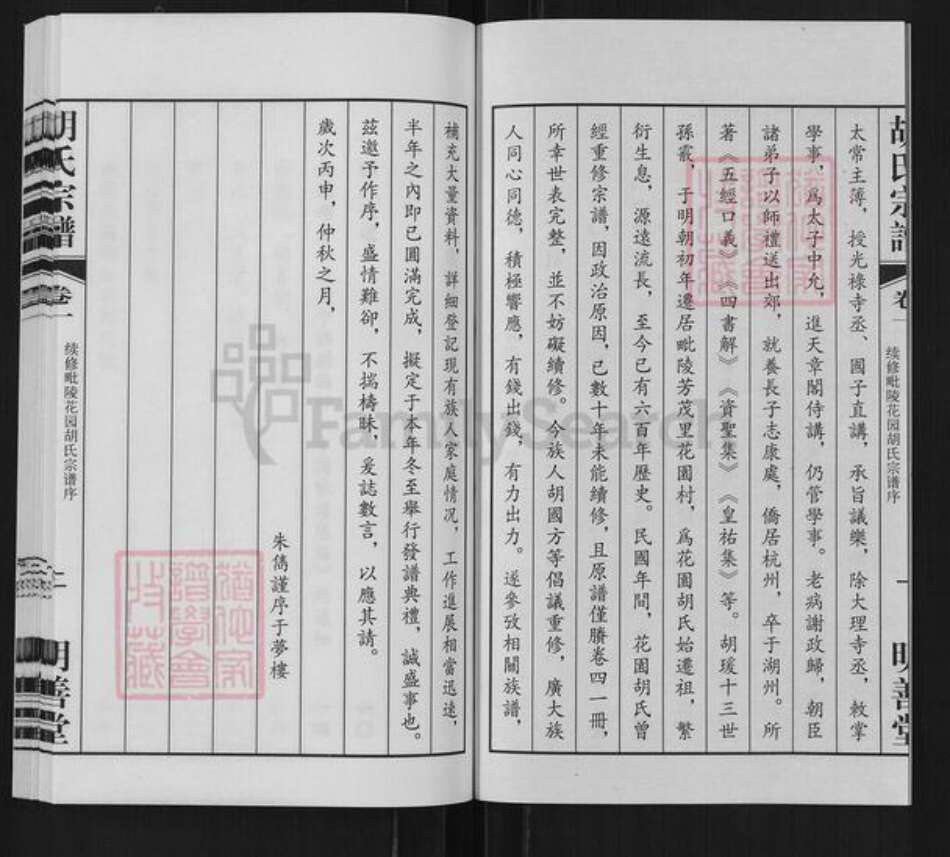 胡氏宗譜
卷一
续修毗陵花园胡氏宗谱序
一
明善堂
太常主簿，授光祿寺丞、國子直講，承旨議樂，除大理寺丞，敕掌
學事，爲太子中允，進天章閣侍講，仍管學事。老病謝政歸，朝臣
諸弟子以師禮送出郊，就養長子志康處，僑居杭州，卒于湖州。所
著《五經口義》《四書解》《資聖集》《皇祐集》等。胡瑗十三世
孫霰，于明朝初年遷居毗陵芳茂里花園村，爲花園胡氏始遷祖，繁
衍生息，源遠流長，至今已有六百年歷史。民國年間，花園胡氏曾
經重修宗譜，因政治原因，已數十年未能續修，且原譜僅賸卷四一冊，
所幸世表完整，並不妨礙續修。今族人胡國方等倡議重修，廣大族
人同心同德，積極響應，有錢出錢，有力出力。遂參攷相關族譜，
補充大量資料，詳細登記現有族人家庭情況，工作進展相當迅速，
半年之內即已圓滿完成，擬定于本年冬至舉行發譜典禮，誠盛事也。
茲邀予作序，盛情難卻，不揣檮昧，爰誌數言，以應其請。
歲次丙申，仲秋之月，
朱雋謹序于夢樓
胡氏宗譜
卷一
续修毗陵花园胡氏宗谱序
二
明善堂
FamilySearch